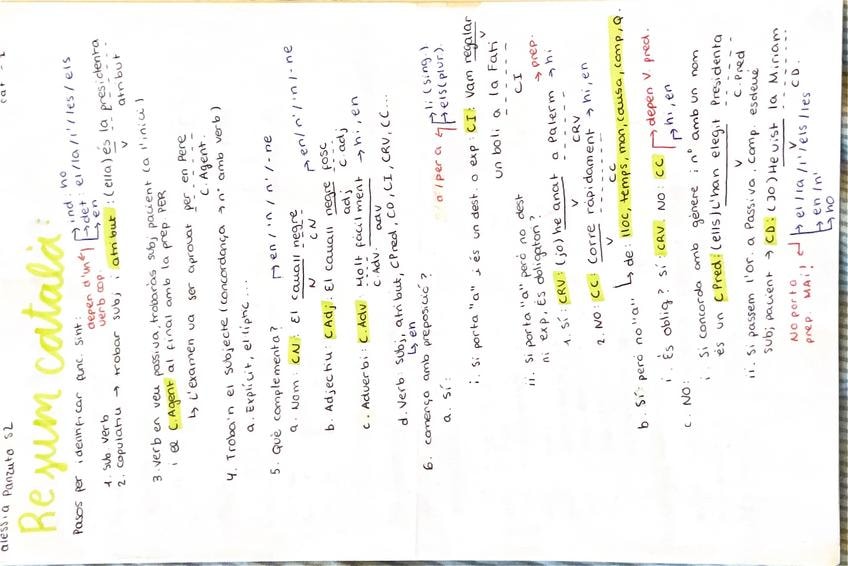 alessia Panzuto S2
cat - 1
Resum català:
Pasos per identificar func. sint:
1. Sub. verb
depen d'un verb cop.
ind: ho
det: el/la/l'/les/els
en
2. Copulatiu → trobar subj i atribut: (ella) és la presidenta
V atribut
3. Verb en veu passiva, trobaràs subj pacient (a l'inici)
i el C.Agent al final amb la prep PER
↳ L'examen va ser aprovat per en Pere
C. Agent.
4. Troba'n el subjecte (concordança → nº amb verb)
a. Explícit, el·líptic...
5. Què complementa?
→ en/'n/n'/-ne
a. Nom: CN: El cavall negre
N CN
→ en/n'/'n/-ne
b. Adjectiu: CAdj. El cavall negre fosc
adj C.adj
c. Adverbi: C.Adv: Molt fàcilment → hi, en
C.Adv adv
d. Verb: subj, atribut, CPred, CD, CI, CRV, CC...
↳ en
6. Comença amb preposició?
a. Sí:
a/per a
li (sing.)
els (plur.)
i. Si porta "a" i és un dest. o exp: CI: Vam regalar
V
un boli a la Fati
CI
ii. Si porta "a" però no dest
→ prep.
ni exp. És obligaton?
1. Sí: CRV: (jo) he anat a Palerm → hi
V CRV
2. NO: CC: Corre ràpidament → hi, en
V CC
↳ de: lloc, temps, man, causa, comp, Q.
b. Sí però no "a"
→ depen V. pred.
i. És oblig? Sí: CRV. NO: CC
→ hi, en
c. NO:
i. Si concorda amb gènere i nº amb un nom
és un CPred: (ells) L'han elegit Presidenta
V C.Pred
ii. Si passem l'or. a Passiva, comp. esdevé
subj pacient → CD: (jo) He vist la Miriam
V CD.
No porta prep. MAI!
el/la/l'/els/les
en/n'
ho